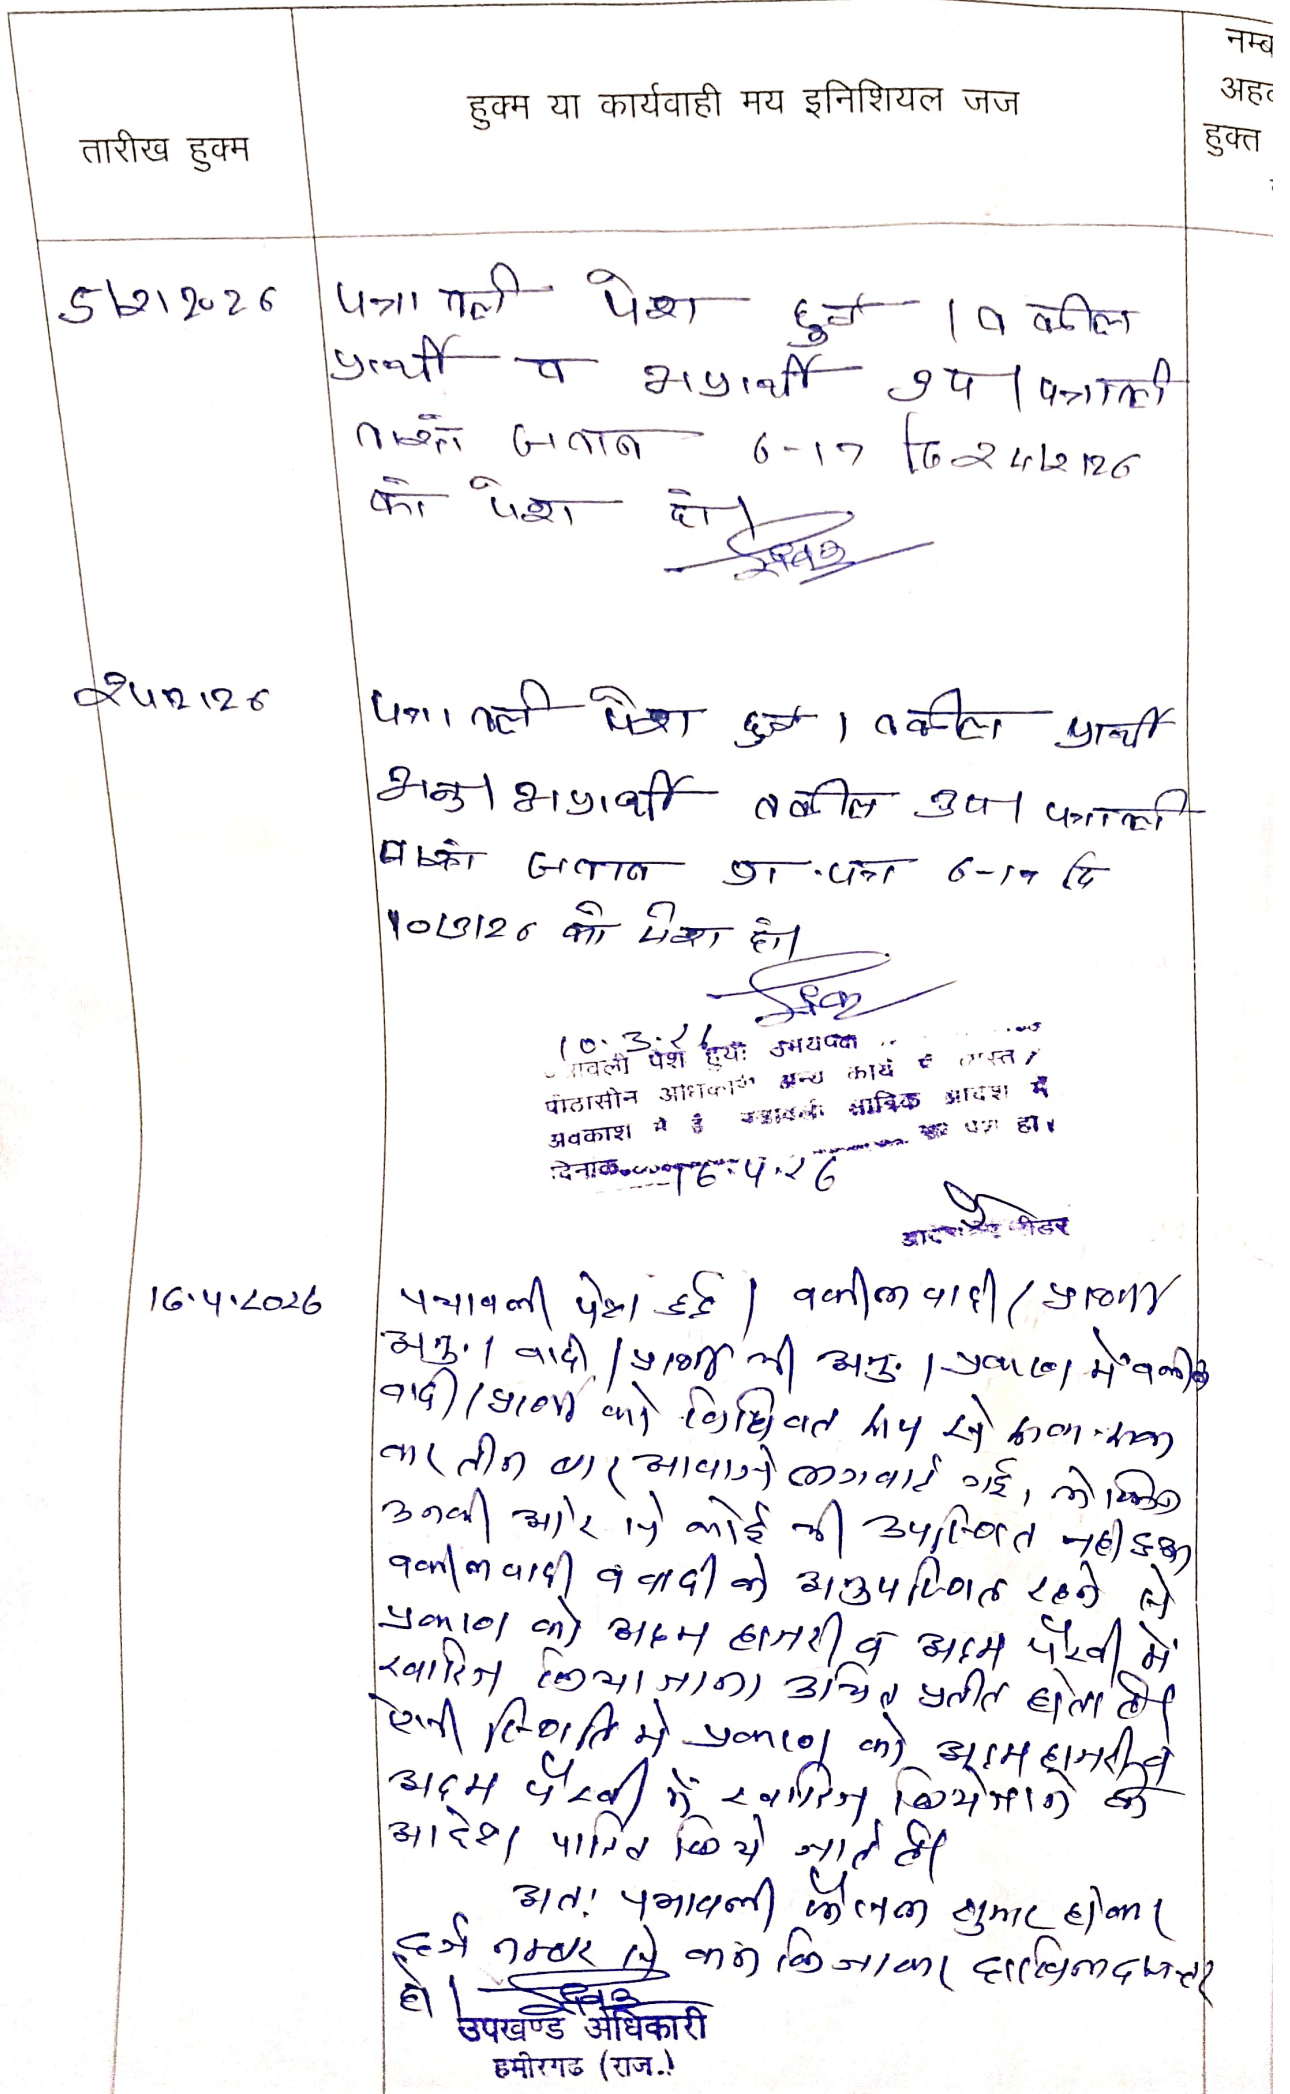 तारीख हुक्म
हुक्म या कार्यवाही मय इनिशियल जज
नम्ब
अहद
हुक्त
5/2/2026
पत्रावली पेश हुई । वकील
प्रार्थी व अप्रार्थी उप । पत्रावली
वास्ते जवाब 6-17 दि 24/2/26
को पेश हो।
24/2/26
पत्रावली पेश हुई । वकील प्रार्थी
अनु। अप्रार्थी वकील उप। पत्रावली
वास्ते जवाब प्रा.पत्र 6-17 दि
10/3/26 को पेश हो।
10.3.26
पेश हुयी उभयपक्ष
पीठासीन अधिकारी अन्य कार्य में व्यस्त/
अवकाश में है पत्रावली साबिक आदेश में
दिनांक 16.4.26 पेश हो।
रीडर
16.4.2026
पत्रावली पेश हुई । वकील वादी / प्रार्थी
अनु. । वादी / प्रार्थी भी अनु. । प्रकरण में वकील
वादी / प्रार्थी को विधिवत रूप से
बार तीन बार आवाजे लगवाई गई, लेकिन
उनकी ओर से कोई भी उपस्थित नही हुआ
वकील वादी व वादी के अनुपस्थित रहने से
प्रकरण को अदम हाजरी व अदम पैरवी में
खारिज किया जाना उचित प्रतीत होता है।
ऐसी स्थिति में प्रकरण को अदम हाजरी व
अदम पैरवी में खारिज किये जाने के
आदेश पारित किये जाते है।
अतः पत्रावली फैसल शुमार होकर
दर्ज नम्बर से कम कि जाकर दाखिल दफ्तर
हो।
उपखण्ड अधिकारी
हमीरगढ (राज.)